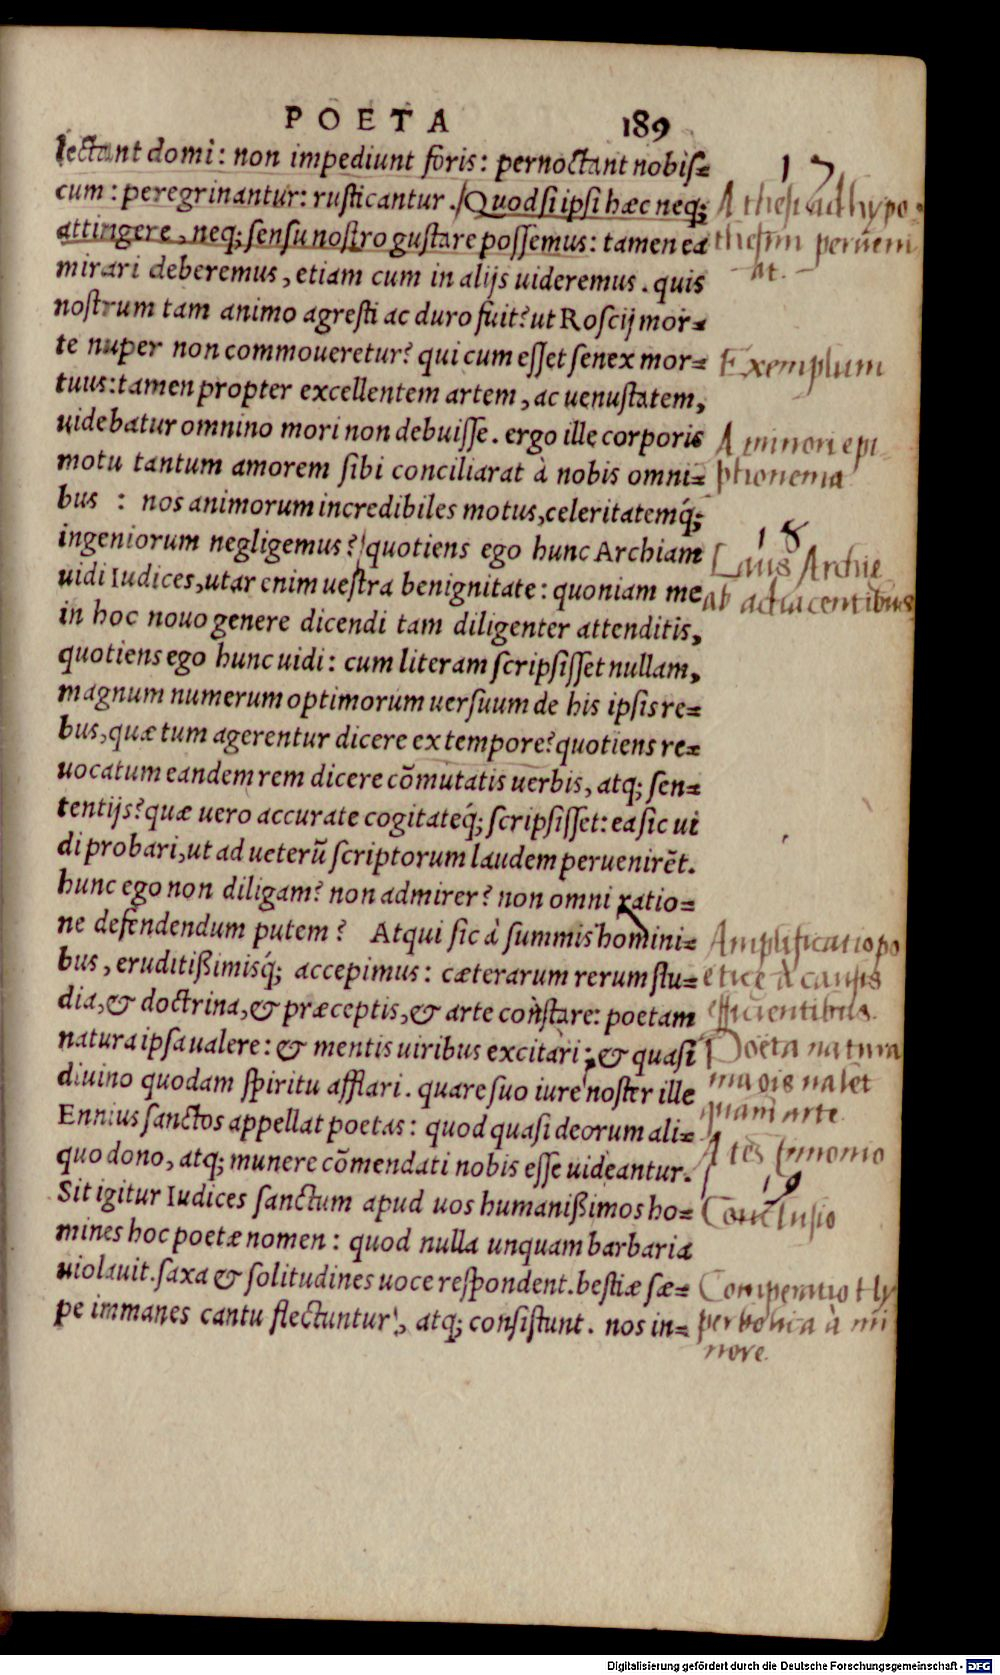 POETA 189
lectant domi: non impediunt foris: pernoctant nobiſ=
cum: peregrinantur: ruſticantur. Quod ſi ipſi hæc neq;
attingere, neq; ſenſu noſtro guſtare poſſemus: tamen ea
mirari deberemus, etiam cum in alijs uideremus. quis
noſtrum tam animo agreſti ac duro fuit? ut Roſcij mor=
te nuper non commoueretur? qui cum eſſet ſenex mor=
tuus: tamen propter excellentem artem, ac uenuſtatem,
uidebatur omnino mori non debuiſſe. ergo ille corporis
motu tantum amorem ſibi conciliarat à nobis omni=
bus : nos animorum incredibiles motus, celeritatemq́;
ingeniorum negligemus? quotiens ego hunc Archiam
uidi Iudices, utar enim ueſtra benignitate: quoniam me
in hoc nouo genere dicendi tam diligenter attenditis,
quotiens ego hunc uidi: cum literam ſcripſiſſet nullam,
magnum numerum optimorum uerſuum de his ipſis re=
bus, quæ tum agerentur dicere ex tempore? quotiens re=
uocatum eandem rem dicere cõmutatis uerbis, atq; ſen=
tentijs? quæ uero accurate cogitateq́; ſcripſiſſet: ea ſic ui
di probari, ut ad ueterũ ſcriptorum laudem peruenirẽt.
hunc ego non diligam? non admirer? non omni ratio=
ne defendendum putem? Atqui ſic à ſummis homini=
bus, eruditißimisq́; accepimus: cæterarum rerum ſtu=
dia, & doctrina, & præceptis, & arte conſtare: poetam
natura ipſa ualere: & mentis uiribus excitari; & quaſi
diuino quodam ſpiritu afflari. quare ſuo iure noſter ille
Ennius ſanctos appellat poetas: quod quaſi deorum ali=
quo dono, atq; munere cõmendati nobis eſſe uideantur.
Sit igitur Iudices ſanctum apud uos humanißimos ho=
mines hoc poetæ nomen: quod nulla unquam barbaria
uiolauit. ſaxa & ſolitudines uoce reſpondent. beſtiæ ſæ=
pe immanes cantu flectuntur, atq; conſiſtunt. nos in=
17
A theſi ad hypo
theſim perueni
at.
Exemplum
A minori epi
phonema
18
Laus Archie
ab adiacentibus
Amplificatio po
etice à cauſis
efficientibus.
Poëta natura
magis ualet
quam arte
A teſtimonio
19
Concluſio
Comperatio Hy
perbolica à mi
nore.
Digitalisierung gefördert durch die Deutsche Forschungsgemeinschaft - DFG